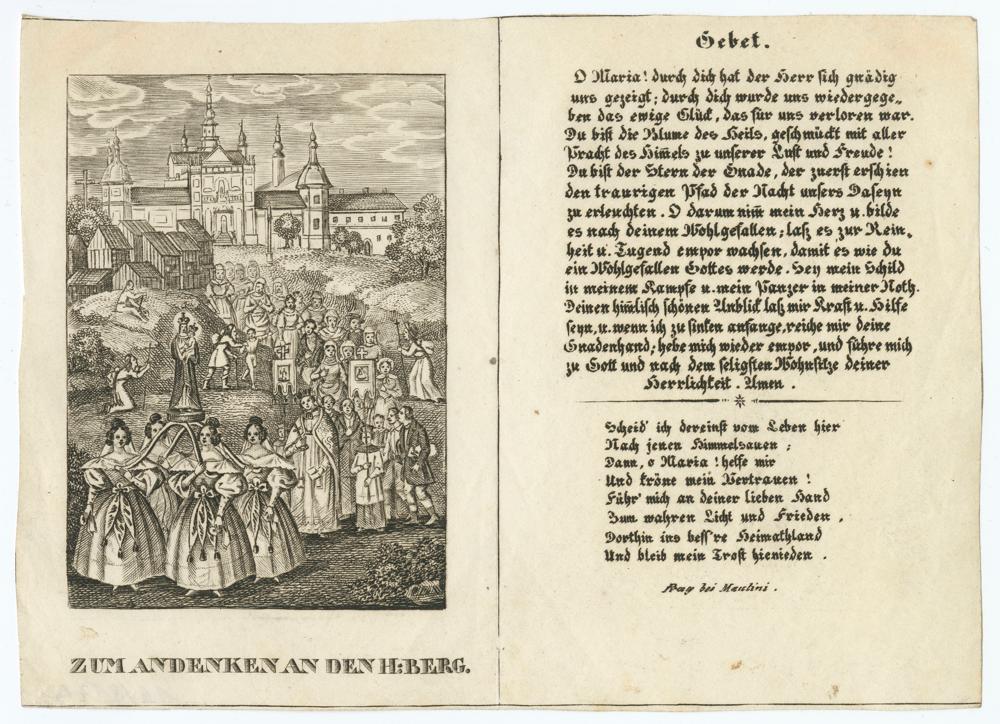 ZUM ANDENKEN AN DEN H: BERG.
Gebet.
O Maria! durch dich hat der Herr sich gnädig
uns gezeigt; durch dich wurde uns wiedergege„
ben das ewige Glück, das für uns verloren war.
Du bist die Blume des Heils, geschmückt mit aller
Pracht des Him̅els zu unserer Lust und Freude!
Du bist der Stern der Gnade, der zuerst erschien
den traurigen Pfad der Nacht unsers Daseyn
zu erleuchten. O darum nim̅ mein Herz u. bilde
es nach deinem Wohlgefallen; laß es zur Rein„
heit u. Tugend empor wachsen, damit es wie du
ein Wohlgefallen Gottes werde. Sey mein Schild
in meinem Kampfe u. mein Panzer in meiner Noth.
Deinen him̅lisch schönen Anblick laß mir Kraft u. Hilfe
seyn, u. wenn ich zu sinken anfange, reiche mir deine
Gnadenhand; hebe mich wieder empor, und führe mich
zu Gott und nach dem seligsten Wohnsitze deiner
Herrlichkeit. Amen.
Scheid' ich dereinst vom Leben hier
Nach jenen Himmelsauen;
Dann, o Maria! helfe mir
Und kröne mein Vertrauen!
Führ' mich an deiner lieben Hand
Zum wahren Licht und Frieden,
Dorthin ins bess're Heimathland
Und bleib mein Trost hienieden.
Prag bei Maulini.